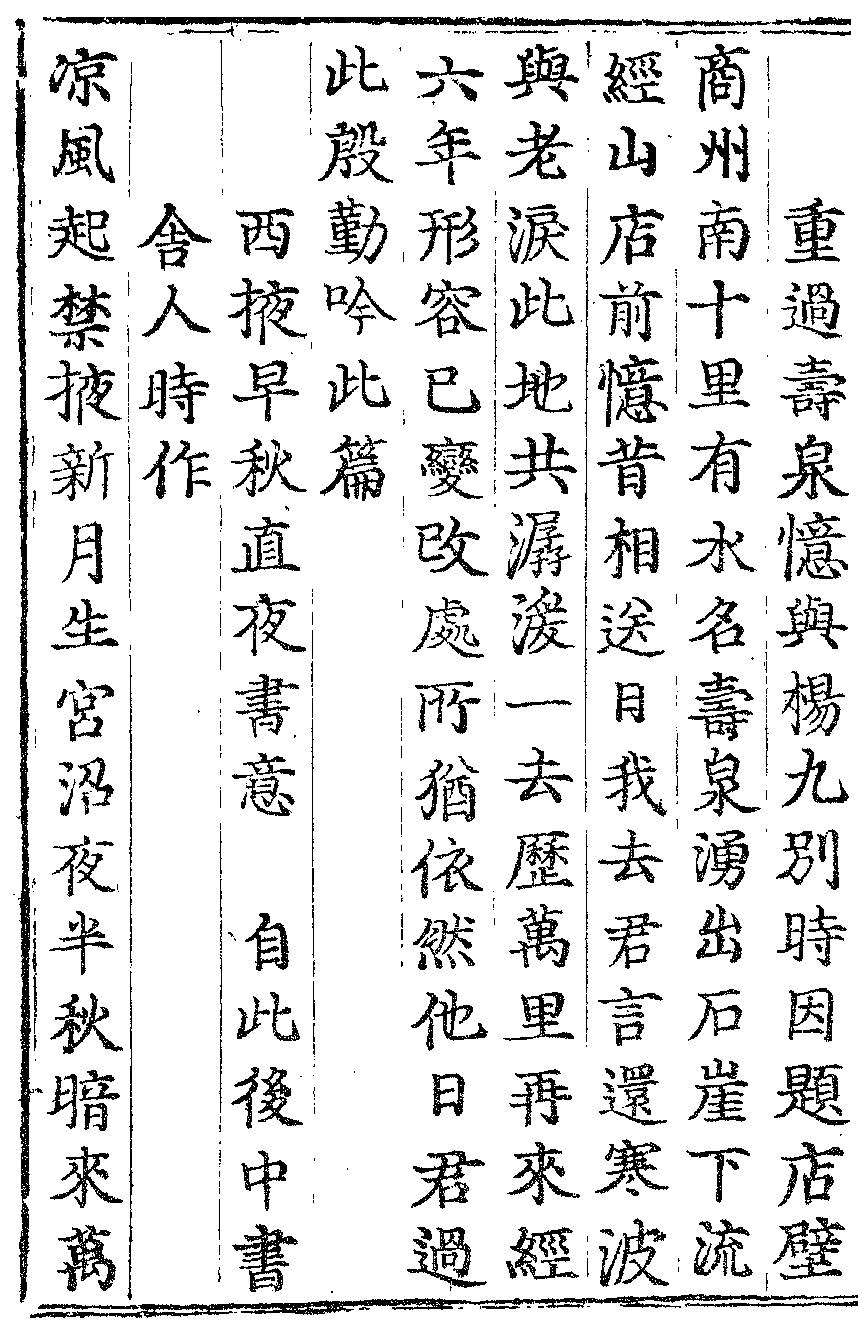 重過壽泉憶與楊九別時因題店壁
商州南十里有水名壽泉湧出石崖下流
經山店前憶昔相送日我去君言還寒波
與老淚此地共潺湲一去歷萬里再來經
六年形容已變改處所猶依然他日君過
此殷勤吟此篇
西掖早秋直夜書意 自此後中書
舍人時作
凉風起禁掖新月生宮沼夜半秋暗來萬